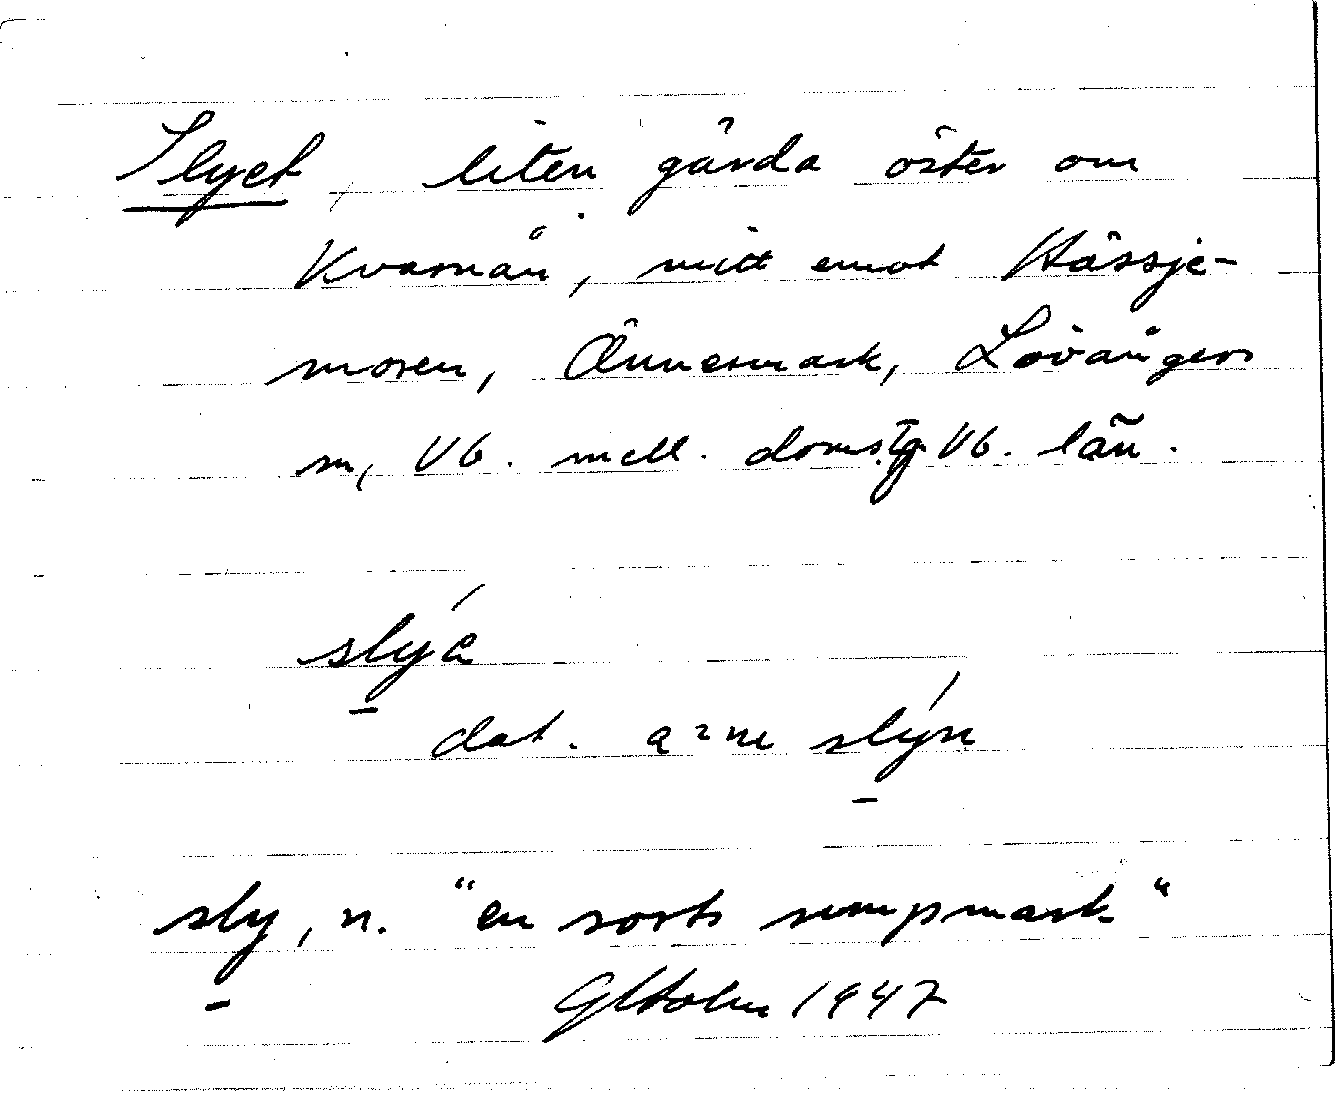 Slyet, liten gärda öster om
Kvarnån, mitt emot Hässje-
moren, Önnesmark, Lövångers
sn, Vb. mell. doms. Vb. län.
slýa
dat. a 2 ne slýn
sly, n. "en sorts sumpmark"
GHolm 1947